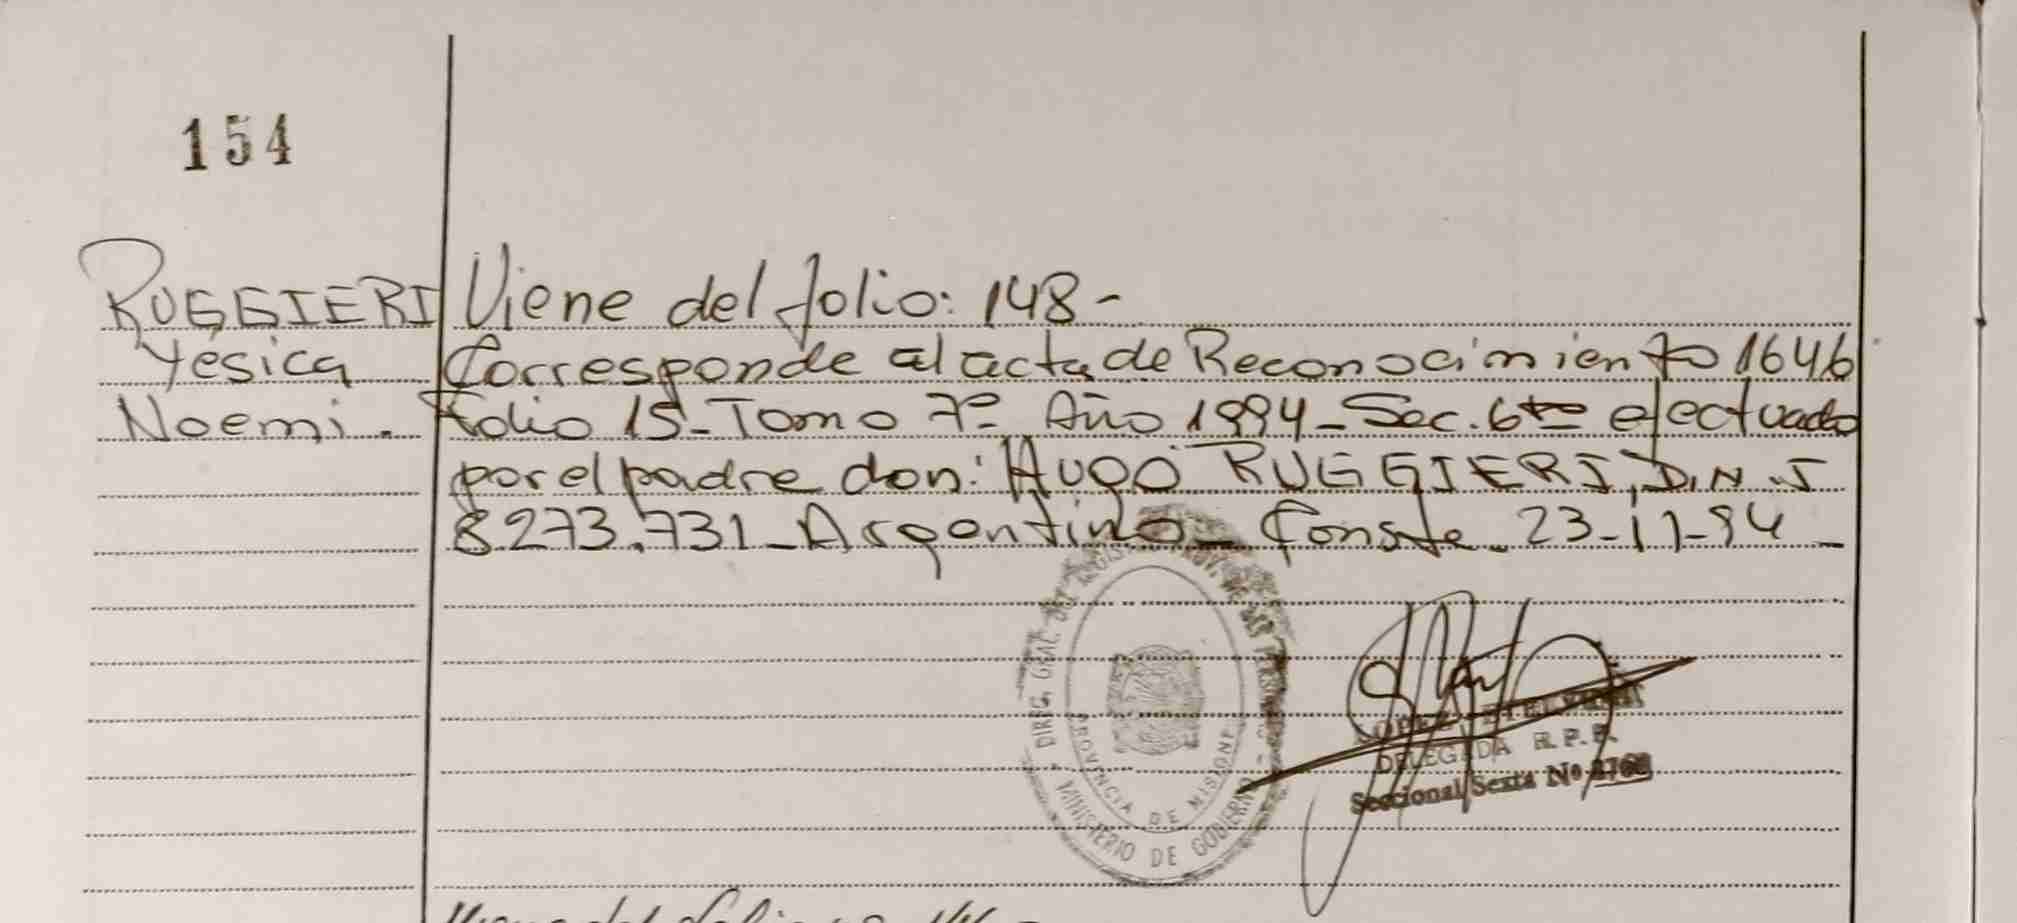 154
RUGGIERI
Yesica
Noemi.
Viene del folio: 148-
Corresponde al acta de Reconocimiento 1646
Folio 15- Tomo 7º Año 1994- Sec. 6ta efectuado
por el padre don: Hugo RUGGIERI, D.N.I
8.273.731- Argentino- Conste- 23-11-94-
DIREC. GRAL. DEL DE LAS
PROVINCIA DE MISIONES
MINISTERIO DE GOBIERNO
LOPEZ
DELEGADA R.P.P.
Seccional Sexta Nº
Viene del folio